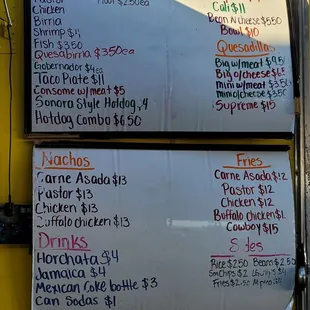 Pastor
Chicken
Birria
Shrimp $4
Fish $3.50
Quesabirria $3.50ea
Gobernador $4
Taco Plate $11
Consome w/meat $5
Sonora Style Hotdog $4
Hotdog Combo $6.50
Cali $11
Bean N cheese $5.50
Bowl $10
Quesadillas
Big w/meat $9.50
Big o/cheese
Mini w/meat $3.50
Mini o/cheese
Supreme $15
Nachos
Carne Asada $13
Pastor $13
Chicken $13
Buffalo chicken $13
Drinks
Horchata $4
Jamaica $4
Mexican Coke bottle $3
Can Sodas $1
Fries
Carne Asada $12
Pastor $12
Chicken $12
Buffalo chicken
Cowboy $15
Rice $2.50 Beans $2.50
Sm Chips $2
Fries $2.50